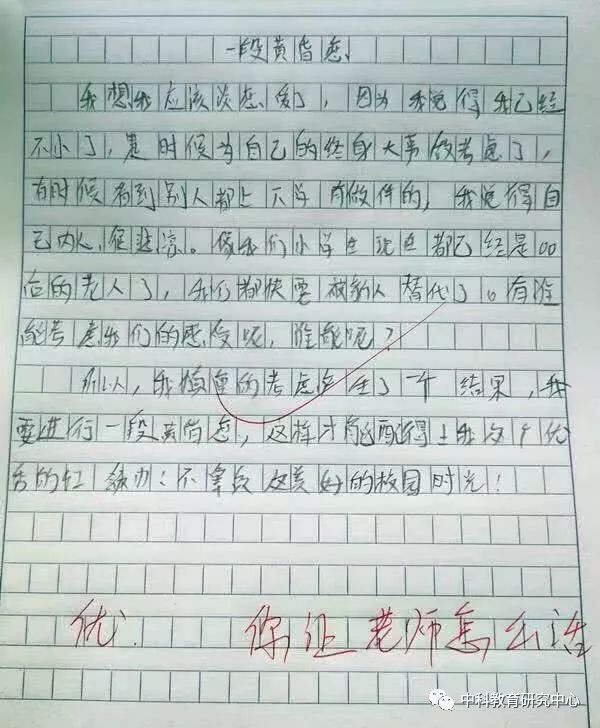 一段黄昏恋
我想我应该谈恋爱了，因为我觉得我已经
不小了，是时候为自己的终身大事做考虑了，
有时候看到别人都上下学有做伴的，我觉得自
己内人很悲凉。像我们小学生现在都已经是00
后的老人了，我们都快要被新人替代了。有谁
能考虑我们的感受呢，谁能呢？
所以，我慎重的考虑产生了一个结果，我
要进行一段黄昏恋，这样才能配得上我这个优
秀的红领巾！不辜负这美好的校园时光！
优
你让老师怎么活
中科教育研究中心